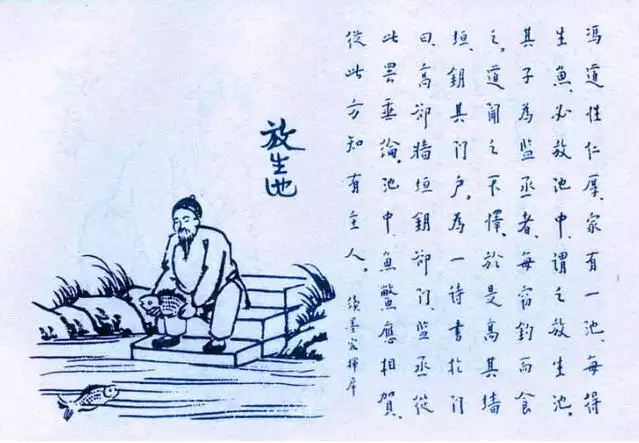 馮道性仁厚、家有一池、每得
生魚、必放池中、謂之放生池。
其子為監丞者、每窃釣而食
之。道聞之不懌、於是高其墙
垣、鑰其门户、為一诗書於门
曰、高卻墙垣鑰卻门、監丞從
此罢垂綸、池中魚鱉應相賀、
從此方知有主人。
續墨客揮犀
放生池